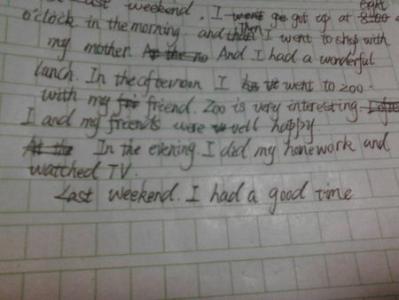 last weekend. I got up at eight
o'clock in the morning. and then I went to shop with
my mother. And I had a wonderful
lunch. In the afternoon I went to zoo
with my friend. Zoo is very interesting.
I and my friends were vell happy
In the evening. I did my homework and
watched TV.
Last weekend. I had a good time